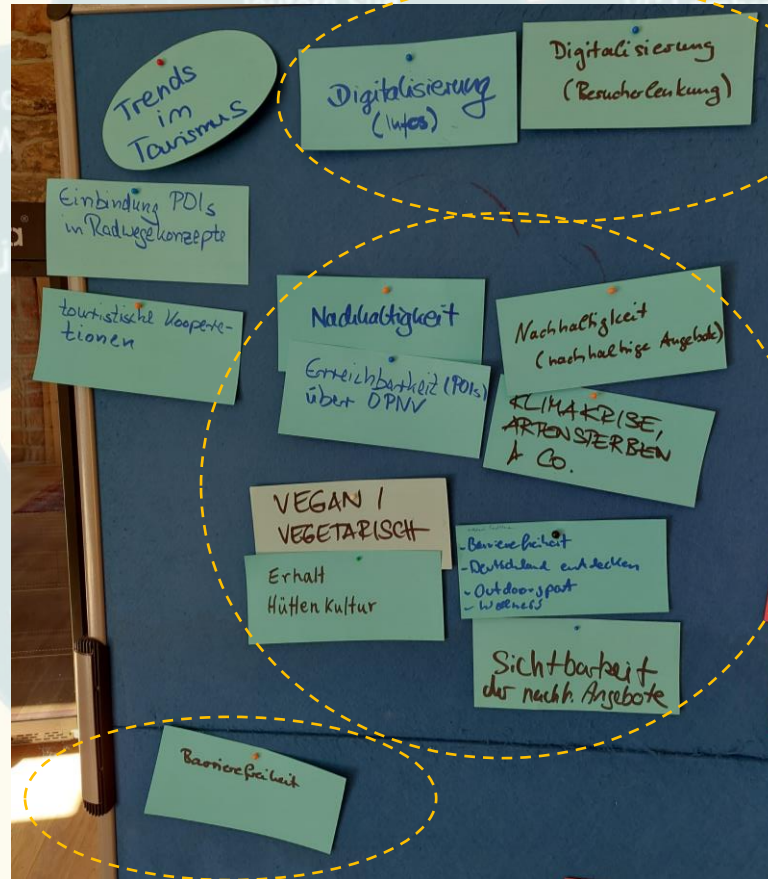 Trends
im
Tourismus
Digitalisierung
(Infos)
Digitalisierung
(Besucherlenkung)
Einbindung POIs
in Radwegekonzepte
touristische Koopera-
tionen
Nachhaltigkeit
Erreichbarkeit (POIs)
über ÖPNV
Nachhaltigkeit
(nachhaltige Angebote)
KLIMAKRISE,
ARTENSTERBEN
& CO.
VEGAN /
VEGETARISCH
Erhalt
Hüttenkultur
- Barrierefreiheit
- Deutschland entdecken
- Outdoorsport
- Wellness
Sichtbarkeit
der nachh. Angebote
Barrierefreiheit